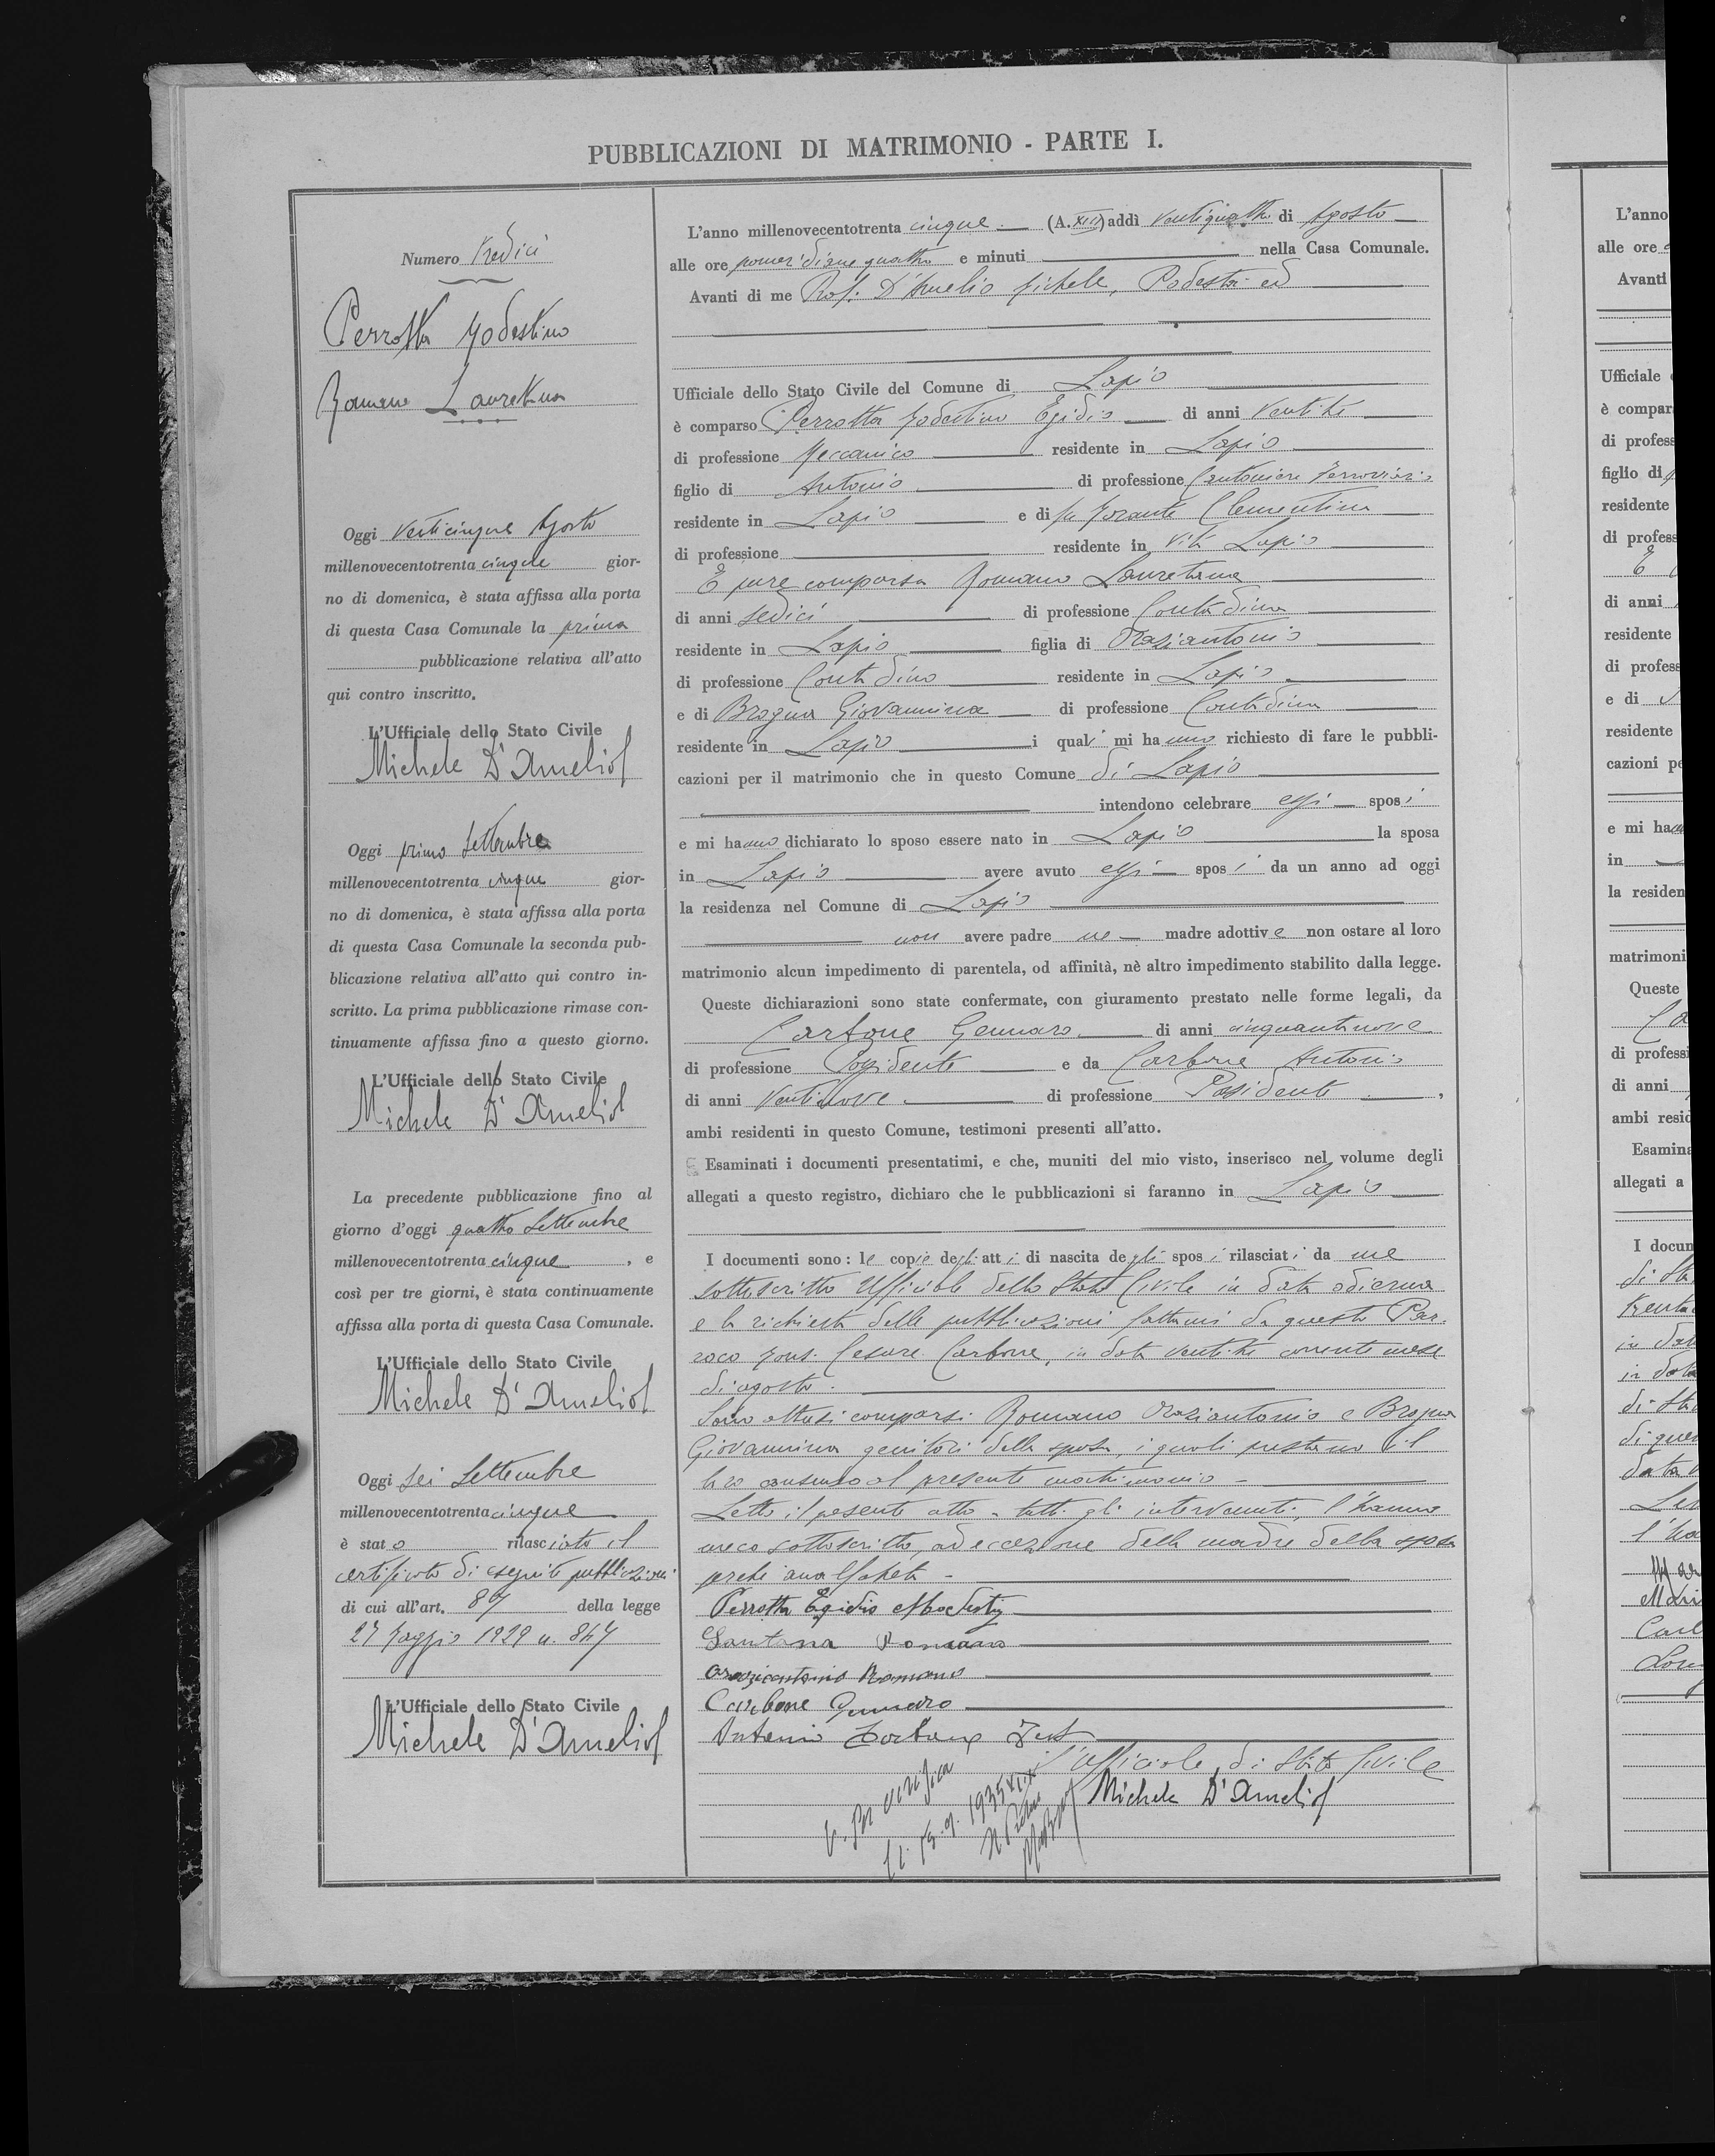 PUBBLICAZIONI DI MATRIMONIO - PARTE I.
Numero tredici
Perrotta Modestino
Romano Lauretana
Oggi venticinque Agosto
millenovecentotrenta cinque gior-
no di domenica, è stata affissa alla porta
di questa Casa Comunale la prima
pubblicazione relativa all'atto
qui contro inscritto.
L'Ufficiale dello Stato Civile
Michele D'Amelio
Oggi primo Settembre
millenovecentotrenta cinque gior-
no di domenica, è stata affissa alla porta
di questa Casa Comunale la seconda pub-
blicazione relativa all'atto qui contro in-
scritto. La prima pubblicazione rimase con-
tinuamente affissa fino a questo giorno.
L'Ufficiale dello Stato Civile
Michele D'Amelio
La precedente pubblicazione fino al
giorno d'oggi quattro Settembre
millenovecentotrenta cinque, e
così per tre giorni, è stata continuamente
affissa alla porta di questa Casa Comunale.
L'Ufficiale dello Stato Civile
Michele D'Amelio
Oggi sei Settembre
millenovecentotrenta cinque
è stato rilasciato il
certificato di eseguite pubblicazioni
di cui all'art. della legge
27 Maggio 1929 n. 847
L'Ufficiale dello Stato Civile
Michele D'Amelio
L'anno millenovecentotrenta cinque (A. XIII) addì ventiquattro di Agosto
alle ore pomeridiane quattro e minuti nella Casa Comunale.
Avanti di me Prof. D'Amelio Michele, Podestà ed
Ufficiale dello Stato Civile del Comune di Lapio
è comparso Perrotta Modestino Egidio di anni ventitre
di professione Meccanico residente in Lapio
figlio di Antonio di professione Cantoniere Ferroviario
residente in Lapio e di fu Morante Clementina
di professione residente in vita Lapio
È pure comparsa Romano Lauretana
di anni sedici di professione Contadina
residente in Lapio figlia di Oraziantonio
di professione Contadino residente in Lapio
e di Brogna Giovannina di professione Contadina
residente in Lapio i quali mi hanno richiesto di fare le pubbli-
cazioni per il matrimonio che in questo Comune di Lapio
intendono celebrare essi sposi
e mi hanno dichiarato lo sposo essere nato in Lapio la sposa
in Lapio avere avuto essi sposi da un anno ad oggi
la residenza nel Comune di Lapio
non avere padre ne madre adottive non ostare al loro
matrimonio alcun impedimento di parentela, od affinità, nè altro impedimento stabilito dalla legge.
Queste dichiarazioni sono state confermate, con giuramento prestato nelle forme legali, da
Carbone Gennaro di anni cinquantanove
di professione Possidente e da Carbone Antonio
di anni ventinove di professione Possidente,
ambi residenti in questo Comune, testimoni presenti all'atto.
Esaminati i documenti presentatimi, e che, muniti del mio visto, inserisco nel volume degli
allegati a questo registro, dichiaro che le pubblicazioni si faranno in Lapio
I documenti sono: le copie degli atti di nascita degli sposi rilasciati da me
sottoscritto Ufficiale dello Stato Civile in data odierna
e la richiesta delle pubblicazioni fattami da questo Par-
roco Mons. Cesare Carbone, in data ventitre corrente mese
di agosto.
Sono altresi comparsi Romano Oraziantonio e Brogna
Giovannina genitori della sposa, i quali prestano il
loro consenso al presente matrimonio -
Letto il presente atto a tutti gli intervenuti, l'hanno
meco sottoscritto, ad eccezione della madre della sposa
perchè analfabeta -
Perrotta Egidio Modestino
Romano
Oraziantonio Romano
Carbone Gennaro
Antonio Carbone Test
L'Ufficiale di Stato Civile
Michele D'Amelio
V. per verifica
1935 XIII
L'anno
alle ore
Avanti
Ufficiale
è compar
di profess
figlio di
residente
di profess
E
di anni
residente
di profess
e di
residente
cazioni pe
e mi ha
in
la residen
matrimoni
Queste
Ca
di professi
di anni
ambi resid
Esamina
allegati a
I docun
di Sta
trenta
in dat
in data
di Sta
di ques
data
Let
l'ha